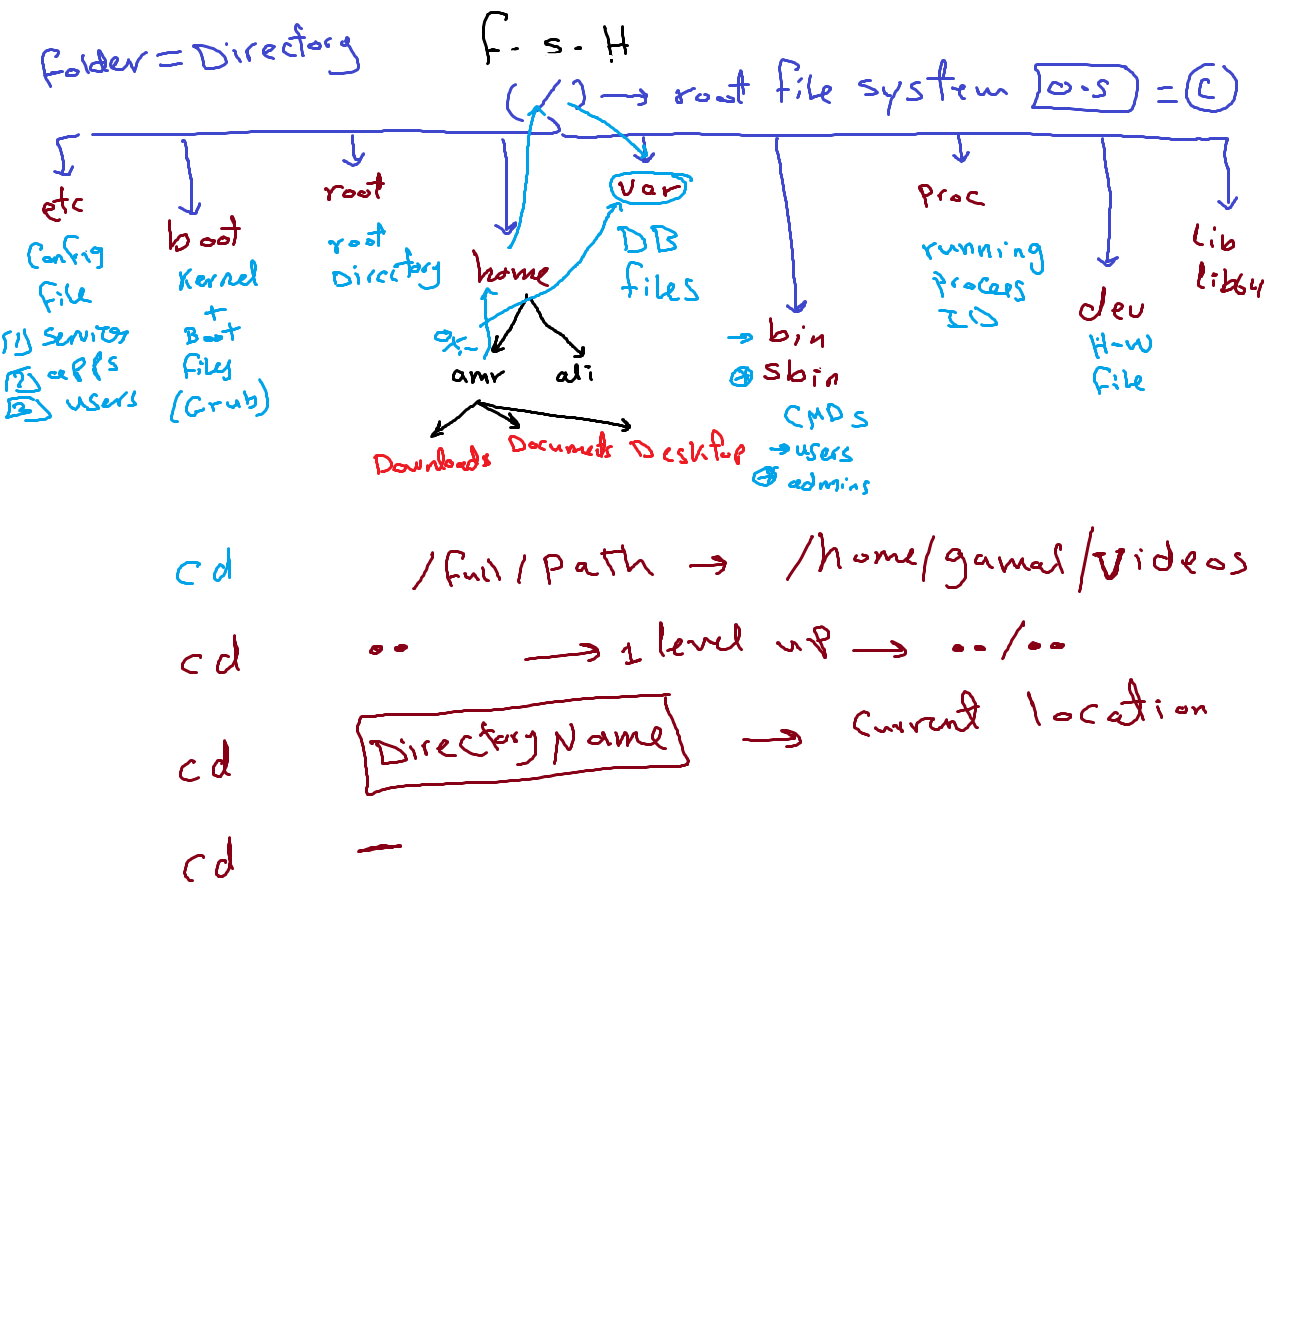 F. S. H
folder = Directory
( / ) → root file system o.s = C
etc
Config
file
(1) services
(2) apps
3 users
boot
Kernel
+
Boot
files
(Grub)
root
root
Directory
home
amr
ali
Downloads
Documents
Desktop
var
DB
files
→ bin
→ sbin
CMDs
→ users
→ admins
proc
running
process
ID
dev
H-W
file
lib
lib64
cd /full/path → /home/gamal/Videos
cd .. → 1 level up → ../..
cd Directory Name → current location
cd -